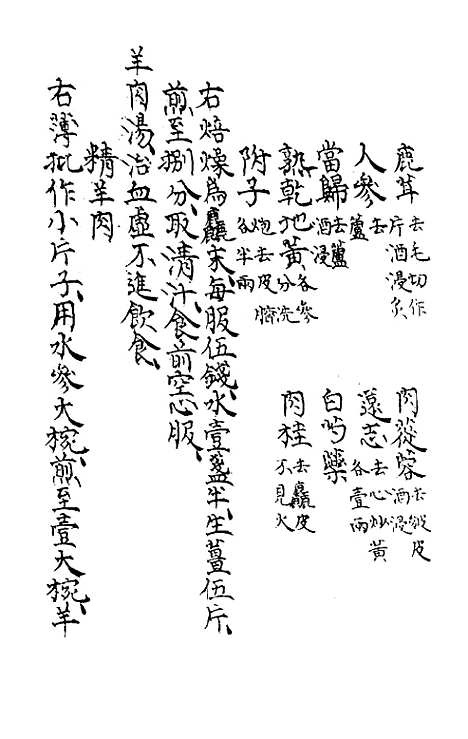 鹿茸去毛切作片酒浸炙 肉蓯蓉去皴皮酒浸
人參去蘆 遠志去心炒黃各壹兩
當歸去蘆酒浸 白芍藥
熟乾地黃洗各參分 肉桂去麤皮不見火
附子炮去皮臍各半兩
右焙燥爲麤末每服伍錢水壹盞半生薑伍片
煎至捌分取清汁食前空心服
羊肉湯治血虛不進飲食
精羊肉
右薄批作小片子用水參大椀煎至壹大椀羊